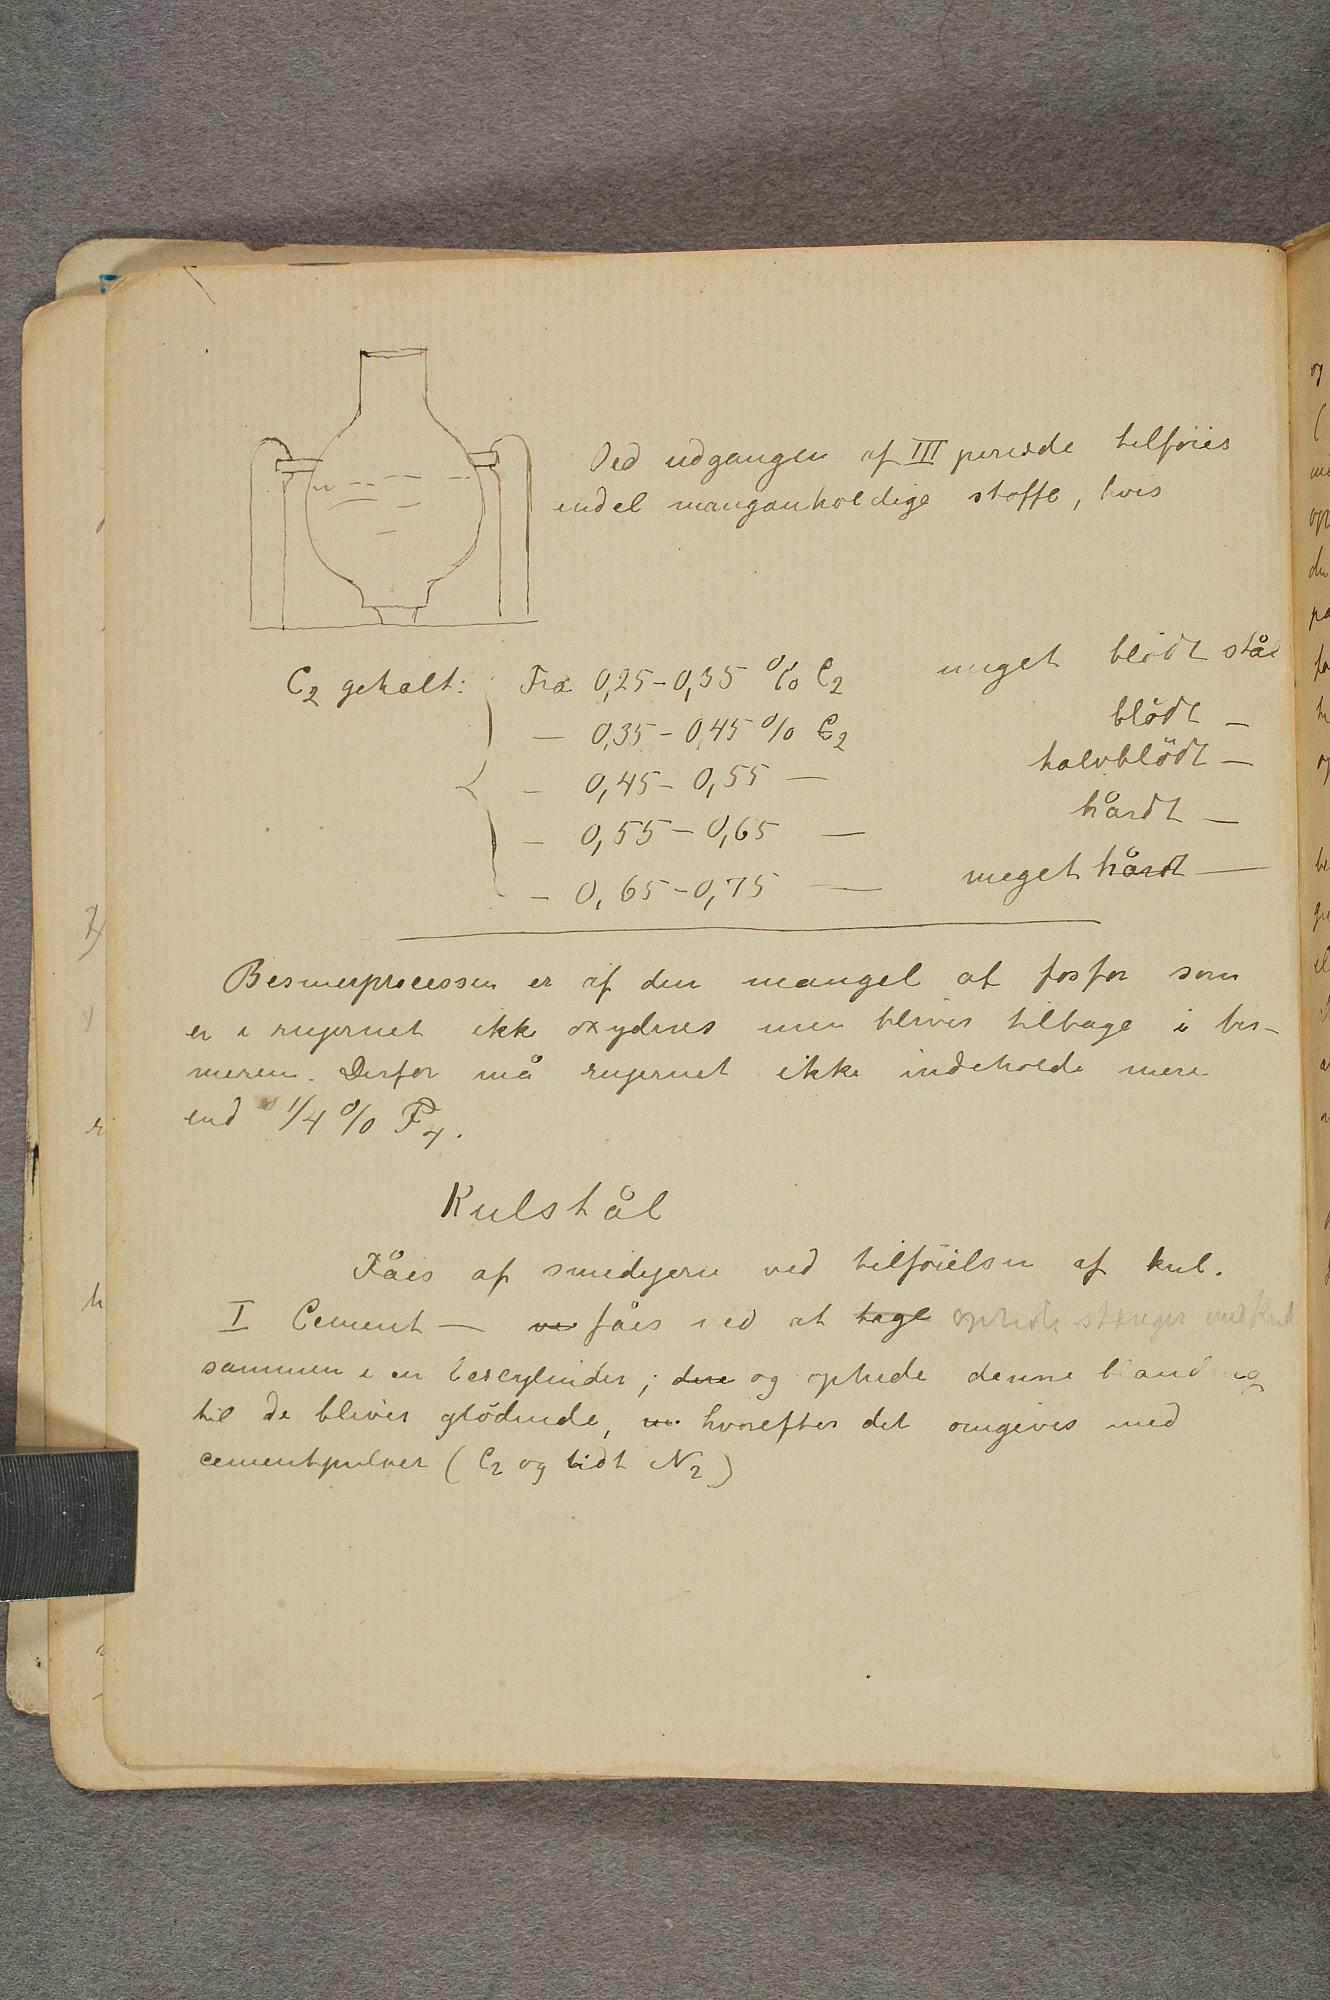 Ved udgangen af III periode tilføies
endel manganholdige stoffe, hvis
C2 gehalt: Fra 0,25-0,35 % C2 meget blødt stål
— 0,35-0,45 % C2 blödt —
— 0,45-0,55 — halvblödt —
— 0,55-0,65 — hårdt —
— 0,65-0,75 — meget hårdt —
Besmerprocessen er af den mangel at fosfor som
er i rujernet ikke oxyderes men bliver tilbage i bes-
meren. Derfor må rujernet ikke indeholde mere
end 1/4 % P4.
Kulstål
Fåes af smedejern ved tilföielsen af kul.
I Cement — fåes ved at tage ophede stænger med Kul
sammen i en lercylinder; og ophede denne blanding
til de bliver glödende, hvorefter det omgives med
cementpulver (C2 og lidt N2)